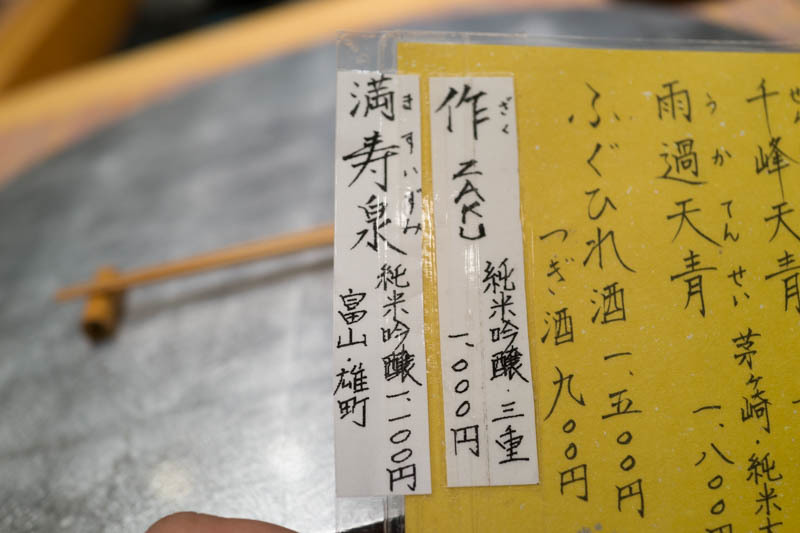 千峰天青
雨過天青
うかてんせい
茅ヶ崎・純米
一、八〇〇
ふぐひれ酒 一、五〇〇円
つぎ酒 九〇〇円
作 ZAKU
ざく
純米吟醸・三重
一、〇〇〇円
満寿泉
ますいずみ
純米吟醸 一、一〇〇円
富山・雄町